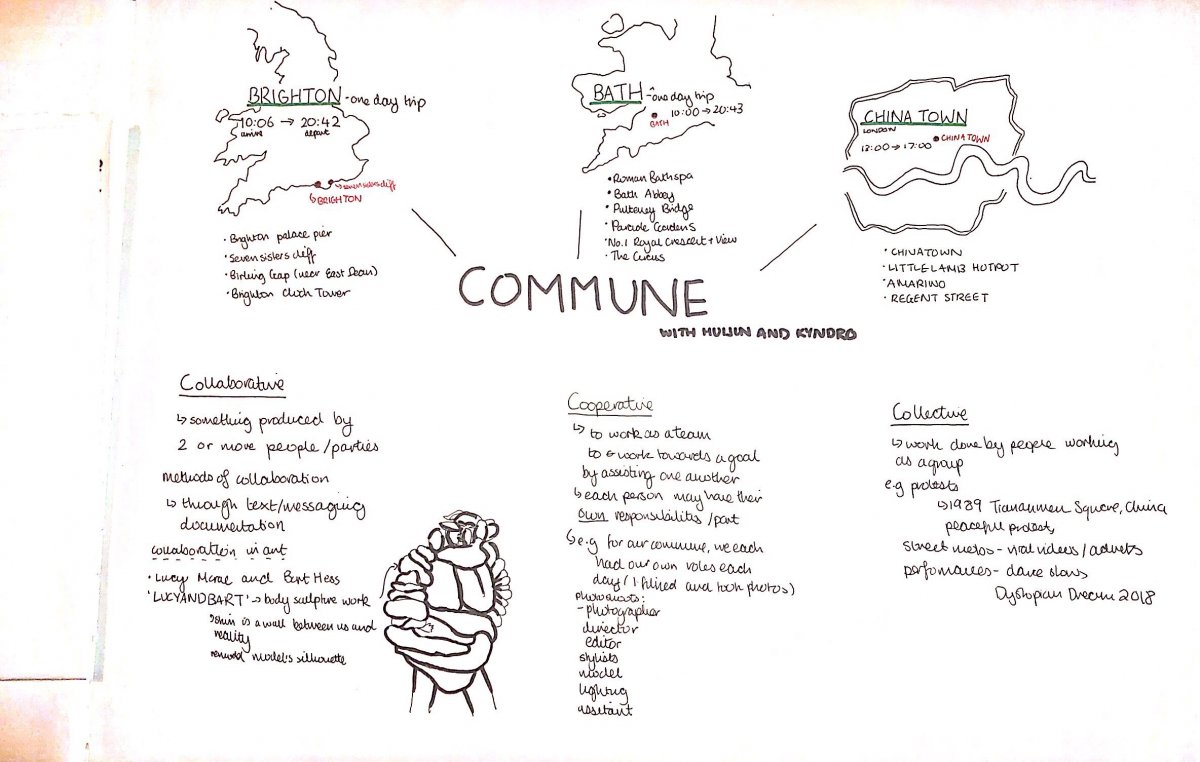 BRIGHTON - one day trip
10:06 → 20:42
arrive depart
↳ seven sisters cliff
↳ BRIGHTON
• Brighton palace pier
• Seven sisters cliff
• Birling Gap (near East Dean)
• Brighton Clock Tower
BATH - one day trip
10:00 → 20:43
BATH
• Roman Bath spa
• Bath Abbey
• Pulteney Bridge
• Parade Gardens
• No.1 Royal Crescent + View
• The Circus
CHINA TOWN
LONDON
CHINATOWN
→ 17:00
• CHINATOWN
• LITTLE LAMB HOTPOT
• AMARINO
• REGENT STREET
COMMUNE
WITH HUIJUN AND KYNDRO
Collaborative
↳ something produced by
2 or more people/parties
methods of collaboration
↳ through text/messaging
documentation
collaboration in art
• Lucy Mcrae and Bart Hess
'LUCYANDBART' → body sculpture work
skin is a wall between us and
reality
remould model's silhouette
Cooperative
↳ to work as a team
to work towards a goal
by assisting one another
↳ each person may have their
own responsibilities/part
↳ e.g for our commune, we each
had our own roles each
day (I filmed and took photos)
photoshoots:
- photographer
director
editor
stylists
model
lighting
assitant
Collective
↳ work done by people working
as a group
e.g protests
↳ 1989 Tiananmen Square, China
peaceful protests
street - viral videos/adverts
performances - dance
Dystopian Dream 2018